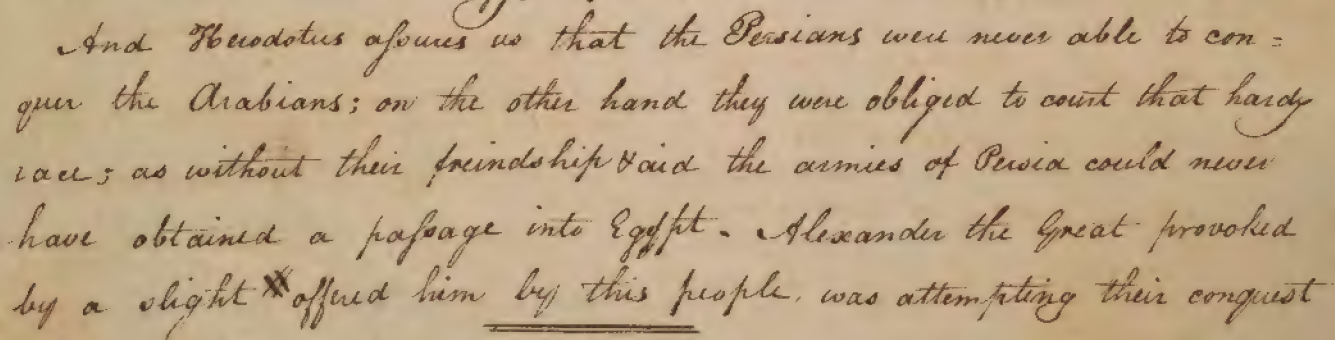 And Herodotus assures us that the Persians were never able to con=
quer the Arabians; on the other hand they were obliged to court that hardy
race; as without their freindship & aid the armies of Persia could never
have obtained a passage into Egypt. Alexander the Great provoked
by a slight offered him by this people, was attempting their conquest